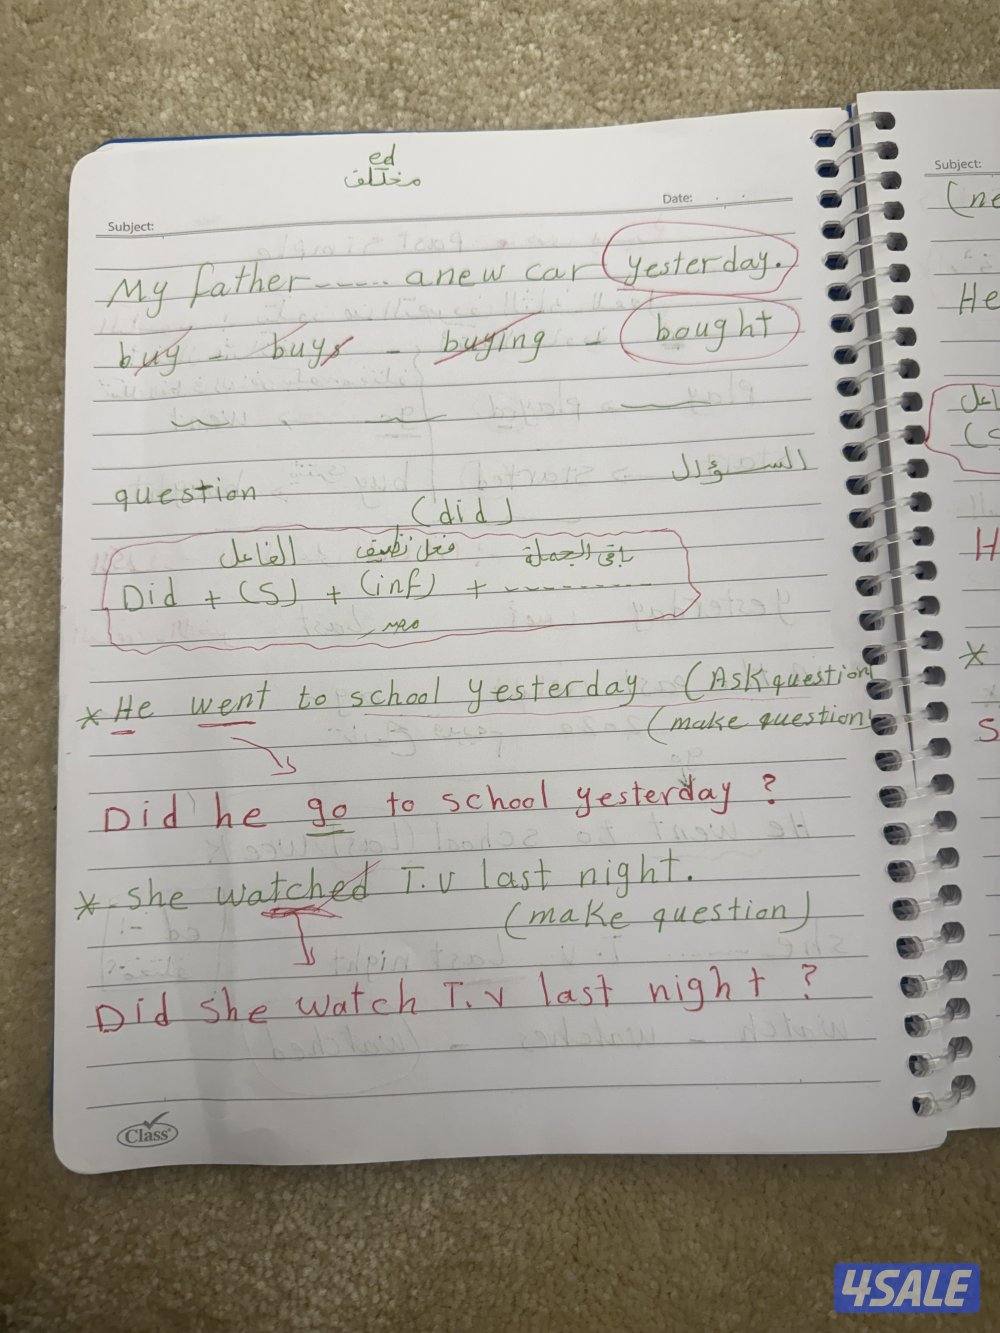 ed
مختلف
Subject:
Date:
My father ------ a new car yesterday.
buy - buys - buying - bought
question السؤال
(did)
الفاعل فعل نظيف باقى الجملة
Did + (S) + (inf) + ---------
مصدر
* He went to school yesterday (Ask question
(make question)
Did he go to school yesterday ?
* she watched T.V last night.
(make question)
Did she watch T.V last night ?
Class
Subject:
(ne
He
H
*
S
4SALE